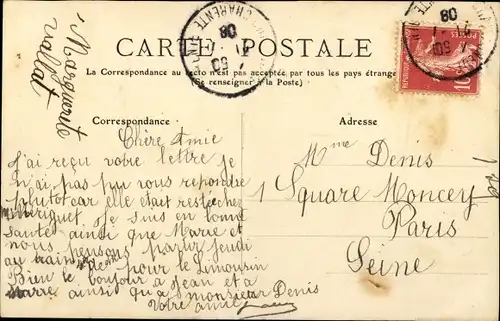 Marguerite
valtat
CARTE POSTALE
La Correspondance au recto n'est pas acceptée par tous les pays étrange
(Se renseigner à la Poste)
Correspondance
Adresse
Chère Amie
J'ai reçu votre lettre je
n'ai pas pu vous repondre
plutot car elle était reste chez
Je suis en bonne
santé ainsi que Marie et
nous pensons partir jeudi
au train de pour le Limousin
Bien le bonjour a Jean et a
Marie ainsi qu'a monsieur Denis
Votre amie
Mme Denis
1 Square Moncey
Paris
Seine
CHARENTE
08
10